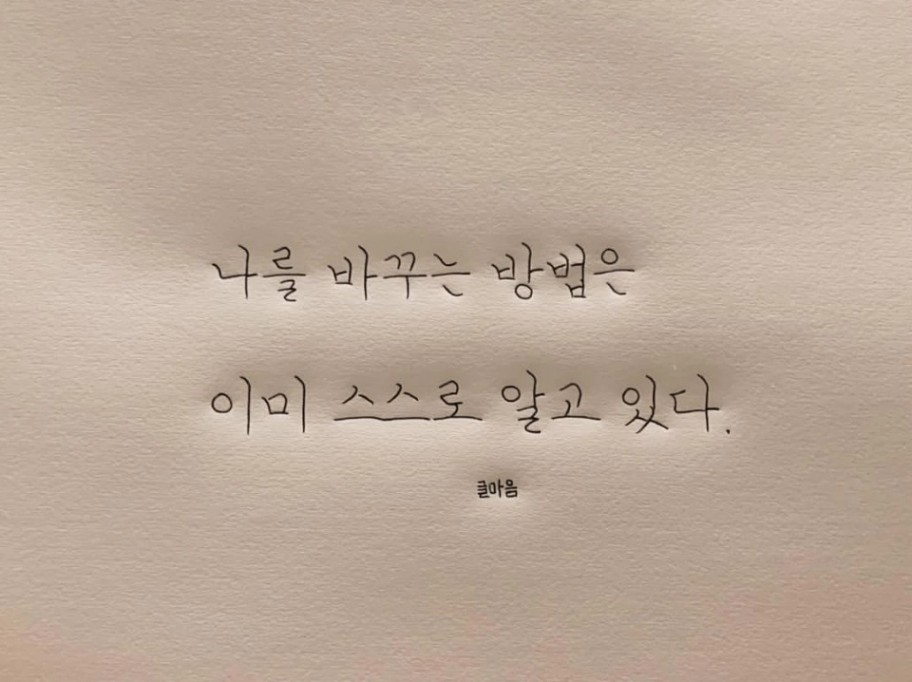 나를 바꾸는 방법은
이미 스스로 알고 있다.
글마음